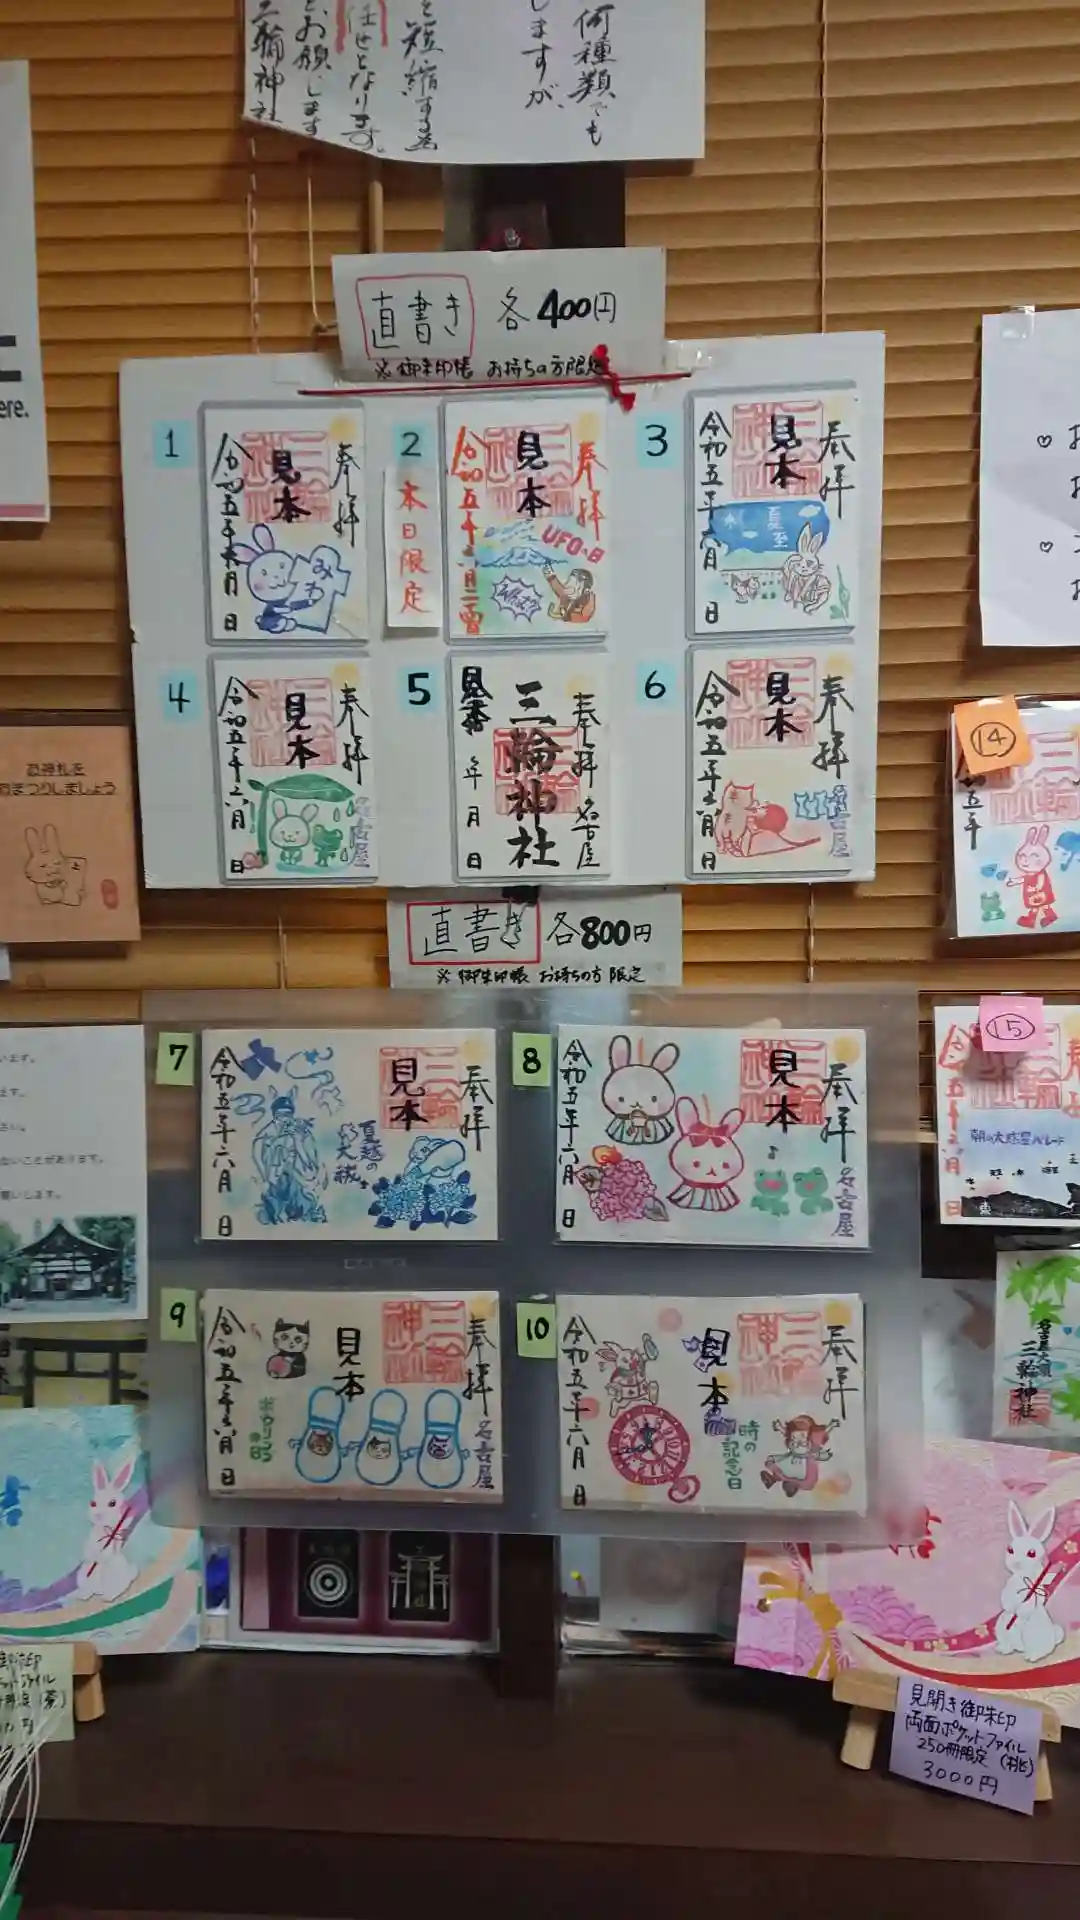 何種類でも
しますが、
を短縮する為
任せとなります。
お願いします
三輪神社
ere.
直書き 各400円
※御朱印帳 お持ちの方限定
1
奉拝
見本
令和五年六月 日
みわ
2
本日限定
奉拝
見本
UFOの日
What?
3
奉拝
見本
夏至
令和五年六月 日
4
奉拝
見本
名古屋
令和五年六月 日
5
奉拝 名古屋
三輪神社
見本
年 月 日
6
奉拝
見本
名古屋
令和五年六月 日
直書き 各800円
※御朱印帳 お持ちの方限定
7
奉拝
見本
夏越の
大祓
令和五年六月 日
8
奉拝
見本
名古屋
令和五年六月 日
9
奉拝
見本
名古屋
令和五年六月 日
10
奉拝
見本
時の
記念日
令和五年六月 日
お神札を
おまつりしましょう
14
15
ないことがあります。
名古屋大須
三輪神社
見開き御朱印
両面ポケットファイル
250冊限定 (桃)
3000円